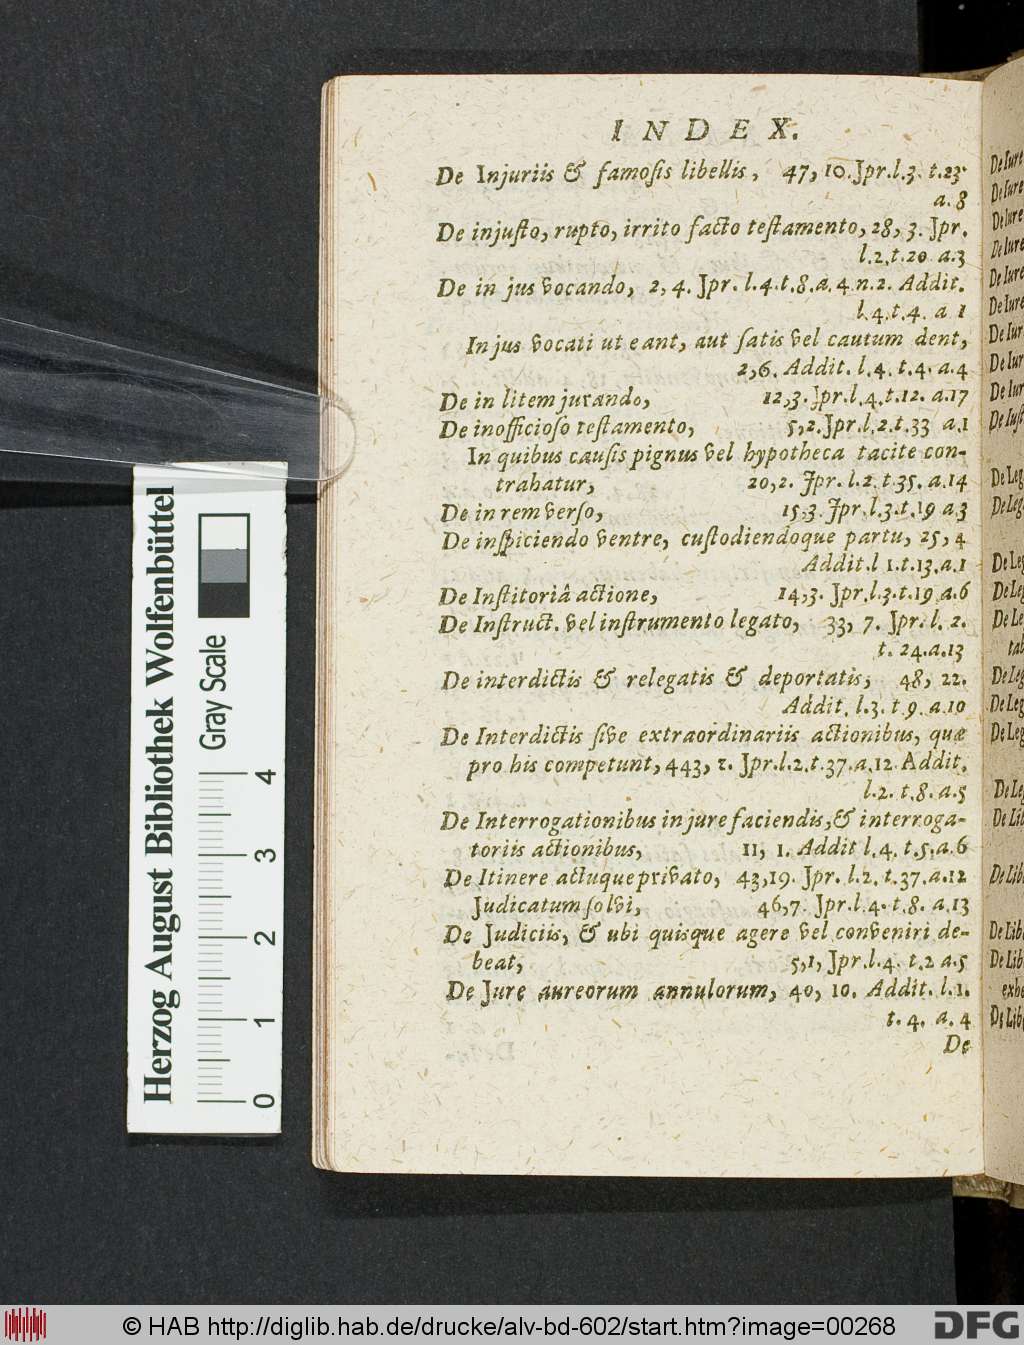 INDEX.
De Injuriis & famoſis libellis, 47, 10. Jpr. l. 3. t. 23.
a. 8
De injuſto, rupto, irrito facto teſtamento, 28, 3. Jpr.
l. 2. t. 20 a. 3
De in jus vocando, 2, 4. Jpr. l. 4. t. 8. a. 4 n. 2. Addit.
l. 4. t. 4. a 1
In jus vocati ut eant, aut ſatis vel cautum dent,
2, 6. Addit. l. 4. t. 4. a. 4
De in litem jurando, 12, 3. Jpr. l. 4. t. 12. a. 17
De inofficioſo teſtamento, 5, 2. Jpr. l. 2. t. 33 a. 1
In quibus cauſis pignus vel hypotheca tacite con-
trahatur, 20, 2. Jpr. l. 2. t. 35. a. 14
De in rem verſo, 15, 3. Jpr. l. 3. t. 19 a. 3
De inſpiciendo ventre, cuſtodiendoque partu, 25, 4
Addit. l 1. t. 13. a. 1
De Inſtitoriâ actione, 14, 3. Jpr. l. 3. t. 19 a. 6
De Inſtruct. vel inſtrumento legato, 33, 7. Jpr. l. 2.
t. 24. a. 13
De interdictis & relegatis & deportatis, 48, 22.
Addit. l. 3. t. 9. a. 10
De Interdictis ſive extraordinariis actionibus, quæ
pro his competunt, 443, 1. Jpr. l. 2. t. 37. a. 12 Addit.
l. 2. t. 8. a. 5
De Interrogationibus in jure faciendis, & interroga-
toriis actionibus, 11, 1. Addit l. 4. t. 5. a. 6
De Itinere actuque privato, 43, 19. Jpr. l. 2. t. 37. a. 12
Judicatum ſolvi, 46, 7. Jpr. l. 4. t. 8. a. 13
De Judiciis, & ubi quisque agere vel conveniri de-
beat, 5, 1, Jpr. l. 4. t. 2 a. 5
De Jure aureorum annulorum, 40, 10. Addit. l. 1.
t. 4. a. 4
De
Herzog August Bibliothek Wolfenbüttel
Gray Scale
0 1 2 3 4
© HAB http://diglib.hab.de/drucke/alv-bd-602/start.htm?image=00268
DFG